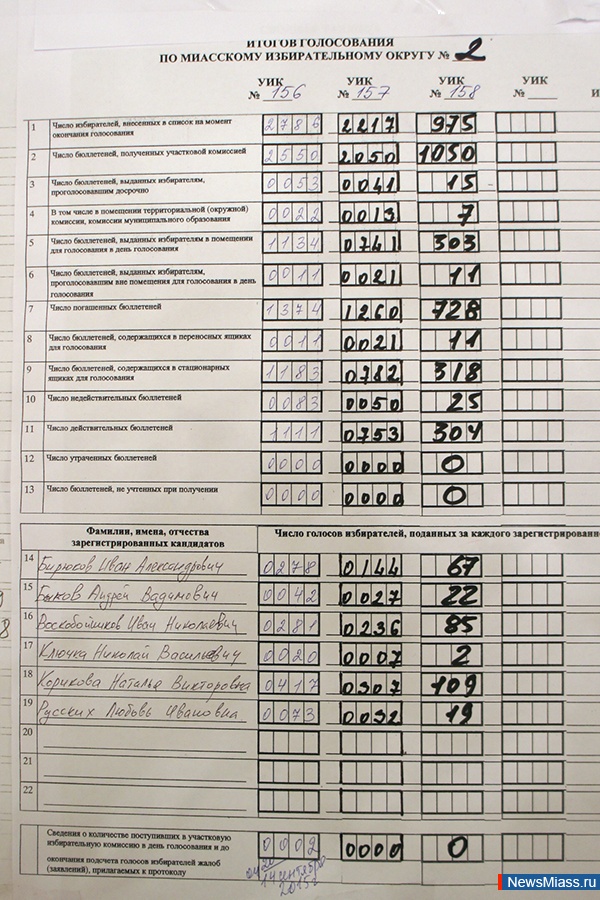 ИТОГОВ ГОЛОСОВАНИЯ
ПО МИАССКОМУ ИЗБИРАТЕЛЬНОМУ ОКРУГУ № 2
УИК УИК УИК УИК
№ 156 № 157 № 158 №
1 Число избирателей, внесенных в список на момент 2786 2217 975
окончания голосования
2 Число бюллетеней, полученных участковой комиссией 2550 2050 1050
3 Число бюллетеней, выданных избирателям, 0053 0041 15
проголосовавшим досрочно
4 В том числе в помещении территориальной (окружной) 0022 0013 7
комиссии, комиссии муниципального образования
5 Число бюллетеней, выданных избирателям в помещении 1134 0741 303
для голосования в день голосования
6 Число бюллетеней, выданных избирателям, 0011 0021 11
проголосовавшим вне помещения для голосования в день
голосования
7 Число погашенных бюллетеней 1374 1260 728
8 Число бюллетеней, содержащихся в переносных ящиках 0011 0021 11
для голосования
9 Число бюллетеней, содержащихся в стационарных 1183 0782 318
ящиках для голосования
10 Число недействительных бюллетеней 0083 0050 25
11 Число действительных бюллетеней 1111 0753 304
12 Число утраченных бюллетеней 0000 0000 0
13 Число бюллетеней, не учтенных при получении 0000 0000 0
Фамилии, имена, отчества
зарегистрированных кандидатов
Число голосов избирателей, поданных за каждого
14 Бирюков Иван Александрович 0278 0144 67
15 Быков Андрей Вадимович 0042 0027 22
16 Воскобойников Иван Николаевич 0281 0236 85
17 Ключка Николай Васильевич 0020 0007 2
18 Корикова Наталья Викторовна 0417 0307 109
19 Русских Любовь Ивановна 0073 0032 19
20
21
22
Сведения о количестве поступивших в участковую 0002 0000 0
избирательную комиссию в день голосования и до
окончания подсчета голосов избирателей жалоб
(заявлений), прилагаемых к протоколу
14 сентября
2015г
NewsMiass.ru